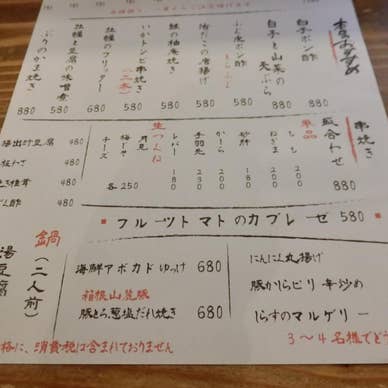 本日のおすすめ
白子ポン酢 880
白子と山菜の天ぷら 880
ふぐ皮ポン酢 580
活だこの唐揚げ 580
鮭の柚庵焼き 580
イカトンビ串焼き(二本) 580
牡蠣のフリッター 880
牡蠣と豆腐の味噌煮 880
ぶりのかま焼き 880
串焼き
盛合わせ 880
単品
もも 180
ねぎま 200
砂肝 180
かしら 200
手羽先 230
レバー 180
生つくね
月見
梅しそ
チーズ
各250
揚出汁豆腐 480
板わさ 480
480
ポン酢 480
フルーツトマトのカプレーゼ 580
鍋(二人前)
湯豆腐
海鮮アボカドゆっけ 680
箱根山麓豚
豚とろ葱塩だれ焼き 680
にんにん丸揚げ
豚からピリ辛炒め
しらすのマルゲリー
3〜4名様でど
格に、消費税は含まれておりません